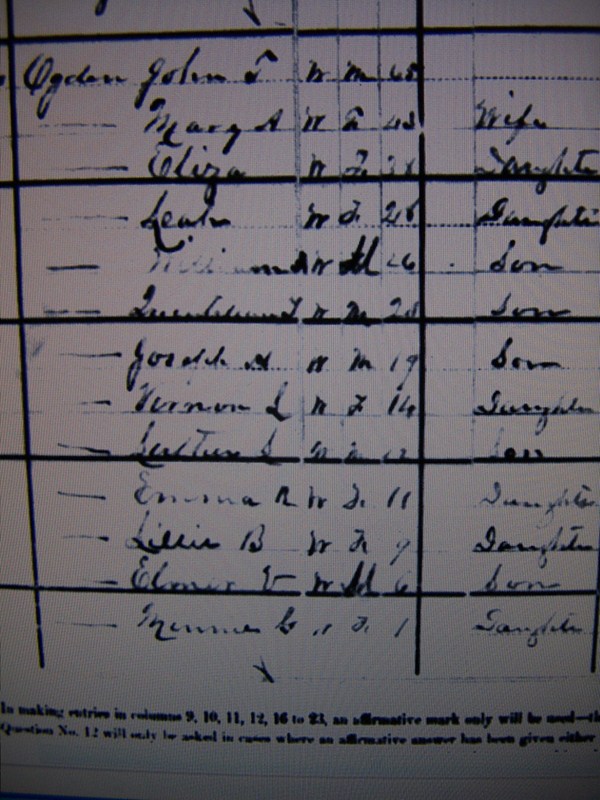 Ogden John T W M 65
Mary A W F 43 Wife
Eliza W F Daughter
Leah W F 26 Daughter
William W M 26 Son
W M Son
Joseph A W M 19 Son
Vernon L W F 14 Daughter
L W M Son
Emma R W F 11 Daughter
Lillie B W F 9 Daughter
Elmer V W M 6 Son
Minnie G W F 1 Daughter
In making entries in columns 9, 10, 11, 12, 16 to 23, an affirmative mark only will be used—
Question No. 12 will only be asked in cases where an affirmative answer has been given either